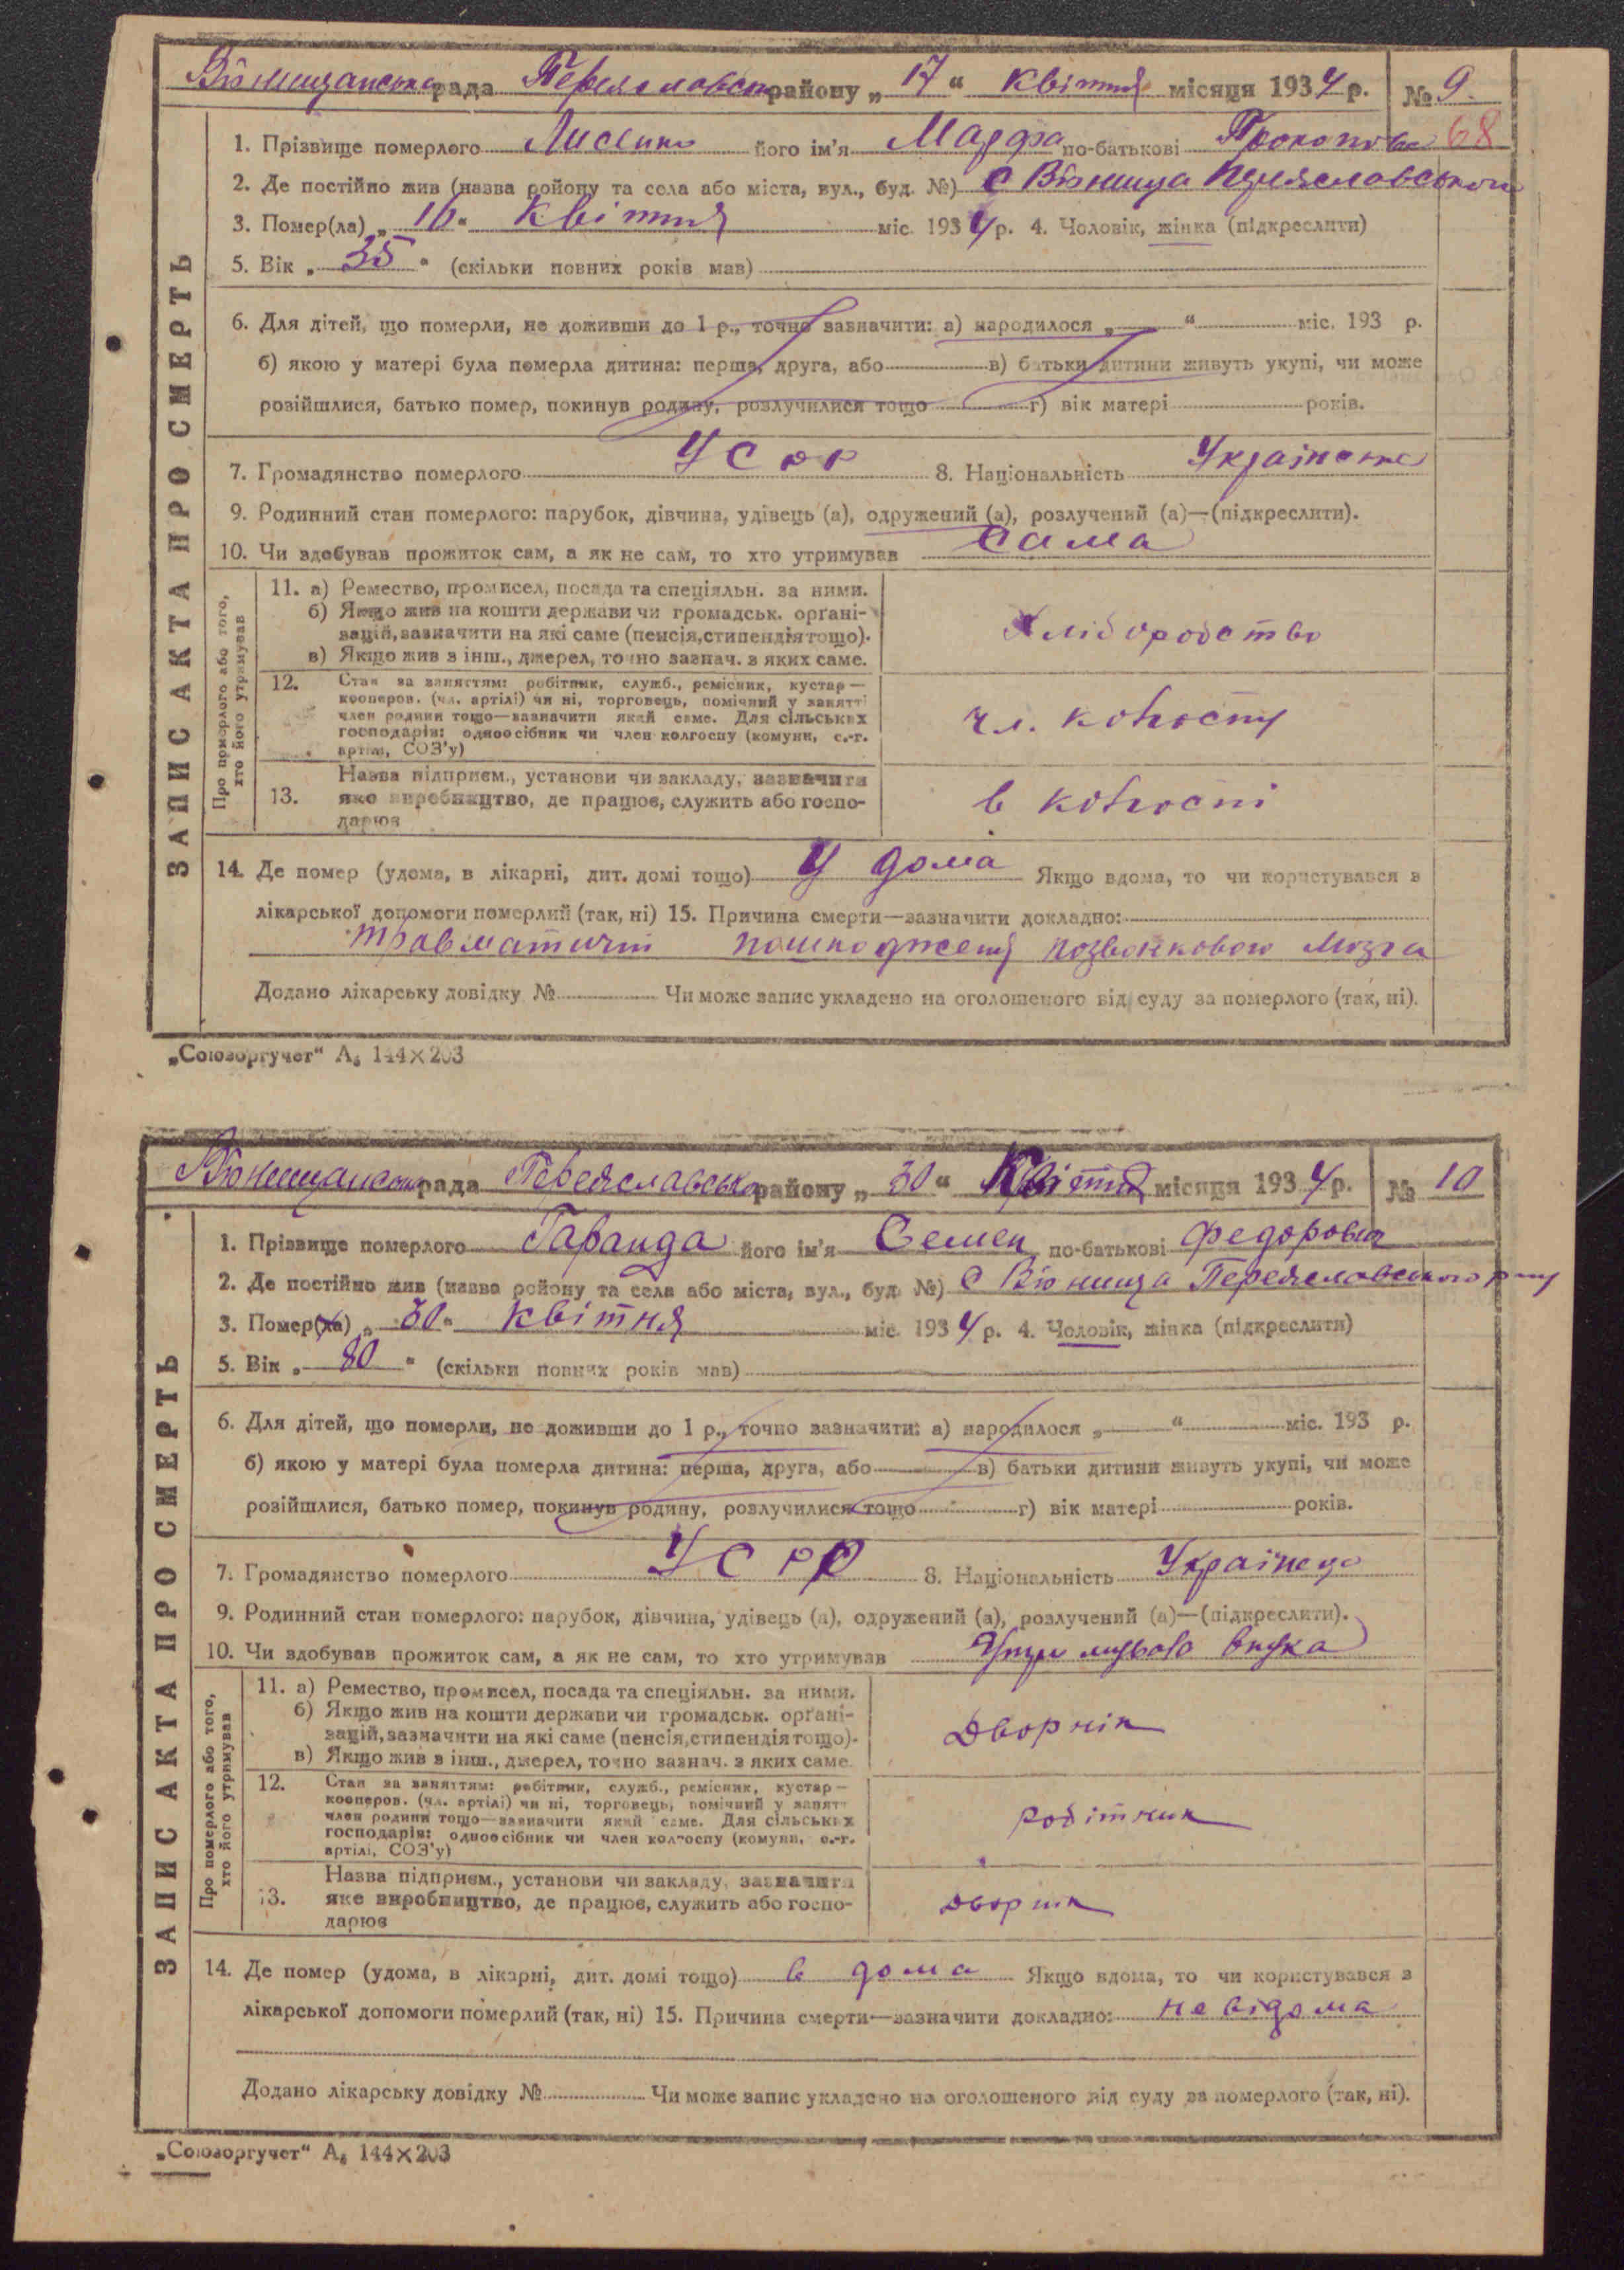 Вюнищанська рада Переяславськ району „ 17 “ Квітня місяця 1934 р. № 9.
68
1. Прізвище померлого Лисенко його ім'я Марфа по-батькові Прокопова
2. Де постійно жив (назва району та села або міста, вул., буд. №) с Вюнища Переяславського
3. Помер(ла) „ 16 “ Квітня міс. 1934 р. 4. Чоловік, жінка (підкреслити)
5. Вік „ 35 “ (скільки повних років мав)
6. Для дітей, що померли, не доживши до 1 р., точно зазначити: а) народилося „ “ міс. 193 р.
б) якою у матері була померла дитина: перша, друга, або в) батьки дитини живуть укупі, чи може
розійшлися, батько помер, покинув родину, розлучилися тощо г) вік матері років.
7. Громадянство померлого УСРР 8. Національність Українка
9. Родинний стан померлого: парубок, дівчина, удівець (а), одружений (а), розлучений (а)—(підкреслити).
10. Чи здобував прожиток сам, а як не сам, то хто утримував Сама
ЗАПИС АКТА ПРО СМЕРТЬ
Про померлого або того, хто його утримував
11. а) Ремество, промисел, посада та спеціяльн. за ними.
б) Якщо жив на кошти держави чи громадськ. орґані-
зацій, зазначити на які саме (пенсія, стипендія тощо).
в) Якщо жив з інш., джерел, точно зазнач. з яких саме.
Хліборобство
12. Стан за заняттям: робітник, служб., ремісник, кустар—
кооперов. (чл. артілі) чи ні, торговець, помічний у занятті
член родини тощо—зазначити який саме. Для сільських
господарів: одноосібник чи член колгоспу (комуни, с.-г.
артілі, СОЗ'у)
чл. колгоспу
13. Назва підприєм., установи чи закладу, зазначити
яке виробництво, де працює, служить або госпо-
дарює
в колгоспі
14. Де помер (удома, в лікарні, дит. домі тощо) У дома Якщо вдома, то чи користувався з
лікарської допомоги померлий (так, ні) 15. Причина смерти—зазначити докладно:
травматичні пошкодженя позвонкового мозга
Додано лікарську довідку № Чи може запис укладено на оголошеного від суду за померлого (так, ні).
„Союзоргучет“ А₅ 144×203
Вюнищанська рада Переяславська району „ 30 “ Квітня місяця 1934 р. № 10
1. Прізвище померлого Гаранда його ім'я Семен по-батькові Федорович
2. Де постійно жив (назва району та села або міста, вул., буд. №) с Вюнища Переяславського р-ну
3. Помер(ла) „ 30 “ Квітня міс. 1934 р. 4. Чоловік, жінка (підкреслити)
5. Вік „ 80 “ (скільки повних років мав)
6. Для дітей, що померли, не доживши до 1 р., точно зазначити: а) народилося „ “ міс. 193 р.
б) якою у матері була померла дитина: перша, друга, або в) батьки дитини живуть укупі, чи може
розійшлися, батько помер, покинув родину, розлучилися тощо г) вік матері років.
7. Громадянство померлого УСРР 8. Національність Українець
9. Родинний стан померлого: парубок, дівчина, удівець (а), одружений (а), розлучений (а)—(підкреслити).
10. Чи здобував прожиток сам, а як не сам, то хто утримував внука
ЗАПИС АКТА ПРО СМЕРТЬ
Про померлого або того, хто його утримував
11. а) Ремество, промисел, посада та спеціяльн. за ними.
б) Якщо жив на кошти держави чи громадськ. орґані-
зацій, зазначити на які саме (пенсія, стипендія тощо).
в) Якщо жив з інш., джерел, точно зазнач. з яких саме.
Дворнік
12. Стан за заняттям: робітник, служб., ремісник, кустар—
кооперов. (чл. артілі) чи ні, торговець, помічний у занятт
член родини тощо—зазначити який саме. Для сільських
господарів: одноосібник чи член колгоспу (комуни, с.-г.
артілі, СОЗ'у)
робітник
13. Назва підприєм., установи чи закладу, зазначити
яке виробництво, де працює, служить або госпо-
дарює
дворник
14. Де помер (удома, в лікарні, дит. домі тощо) в дома Якщо вдома, то чи користувався з
лікарської допомоги померлий (так, ні) 15. Причина смерти—зазначити докладно: не відома
Додано лікарську довідку № Чи може запис укладено на оголошеного від суду за померлого (так, ні).
„Союзоргучет“ А₅ 144×203